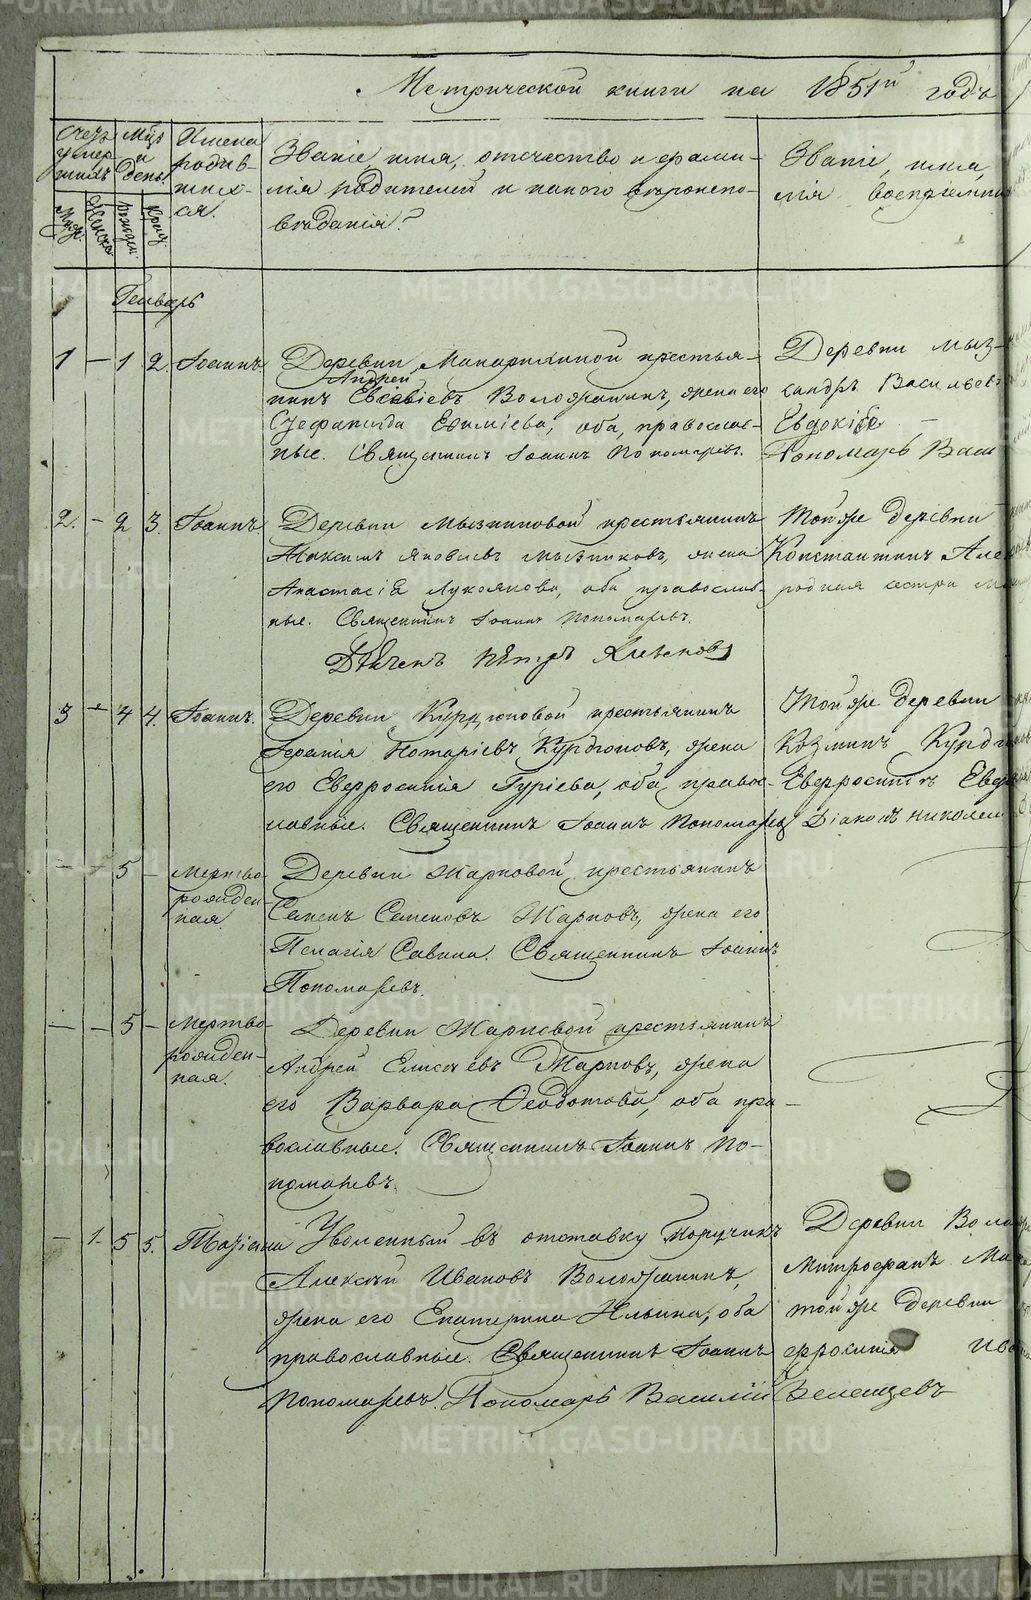 Метрической книги на 1851й годъ
Счетъ
Мцъ
и
день.
Имена
родив-
ших-
ся.
Званіе, имя, отечество и фами-
лія родителей и какого вѣроиспо-
вѣданія?
Званіе, имя,
лія воспріемни
Муж.
Женска
рожден.
Крещ.
Генварь
1 — 1 2. Іоаннъ
Деревни Макарихиной крестья-
Андрей
нинъ Евсевіевъ Воложанинъ, жена его
Стефанида Евфиміева, оба православ-
ные. Священникъ Іоаннъ Пономаревъ.
Деревни Мыз-
сандръ Васильевъ
Евдокія —
Пономарь Васи
2. — 2 3. Іоаннъ.
Деревни Мызниковой крестьянинъ
Максимъ Яковлевъ Мызниковъ, жена
Анастасія Лукоянова, оба православ-
ные. Священникъ Іоаннъ Пономаревъ.
Дьячекъ Петръ
Той же деревни
Константинъ Алек
родная сестра
3 — 4 4. Іоаннъ.
Деревни Курдюковой крестьянинъ
Іеремія Нотаріевъ Курдюковъ, жена
его Евфросинія Гуріева, оба право-
славные. Священникъ Іоаннъ Пономарев
Той же деревни
Козминъ Курдю
Евфросинія
Діаконъ Николай
— — 5 — Мертво-
рожден-
ная.
Деревни Жарковой крестьянинъ
Семенъ Семеновъ Жарковъ, жена его
Пелагія Савина. Священникъ Іоаннъ
Пономаревъ.
— — 5 — Мертво-
рожден-
ная.
Деревни Жарковой крестьянинъ
Андрей Елисеевъ Жарковъ, жена
его Варвара Ѳеодотова, оба пра-
вославные. Священникъ Іоаннъ По-
номаревъ.
— 1 5 5. Татіана
Уволенный въ отставку Поручикъ
Алексѣй Ивановъ Воложанинъ,
жена его Екатерина Ильина, оба
православные. Священникъ Іоаннъ
Пономаревъ. Пономарь Василій Зеленцевъ
Деревни Воло
Митрофанъ Ма
той же деревни
фросинія Ива
METRIKI.GASO-URAL.RU